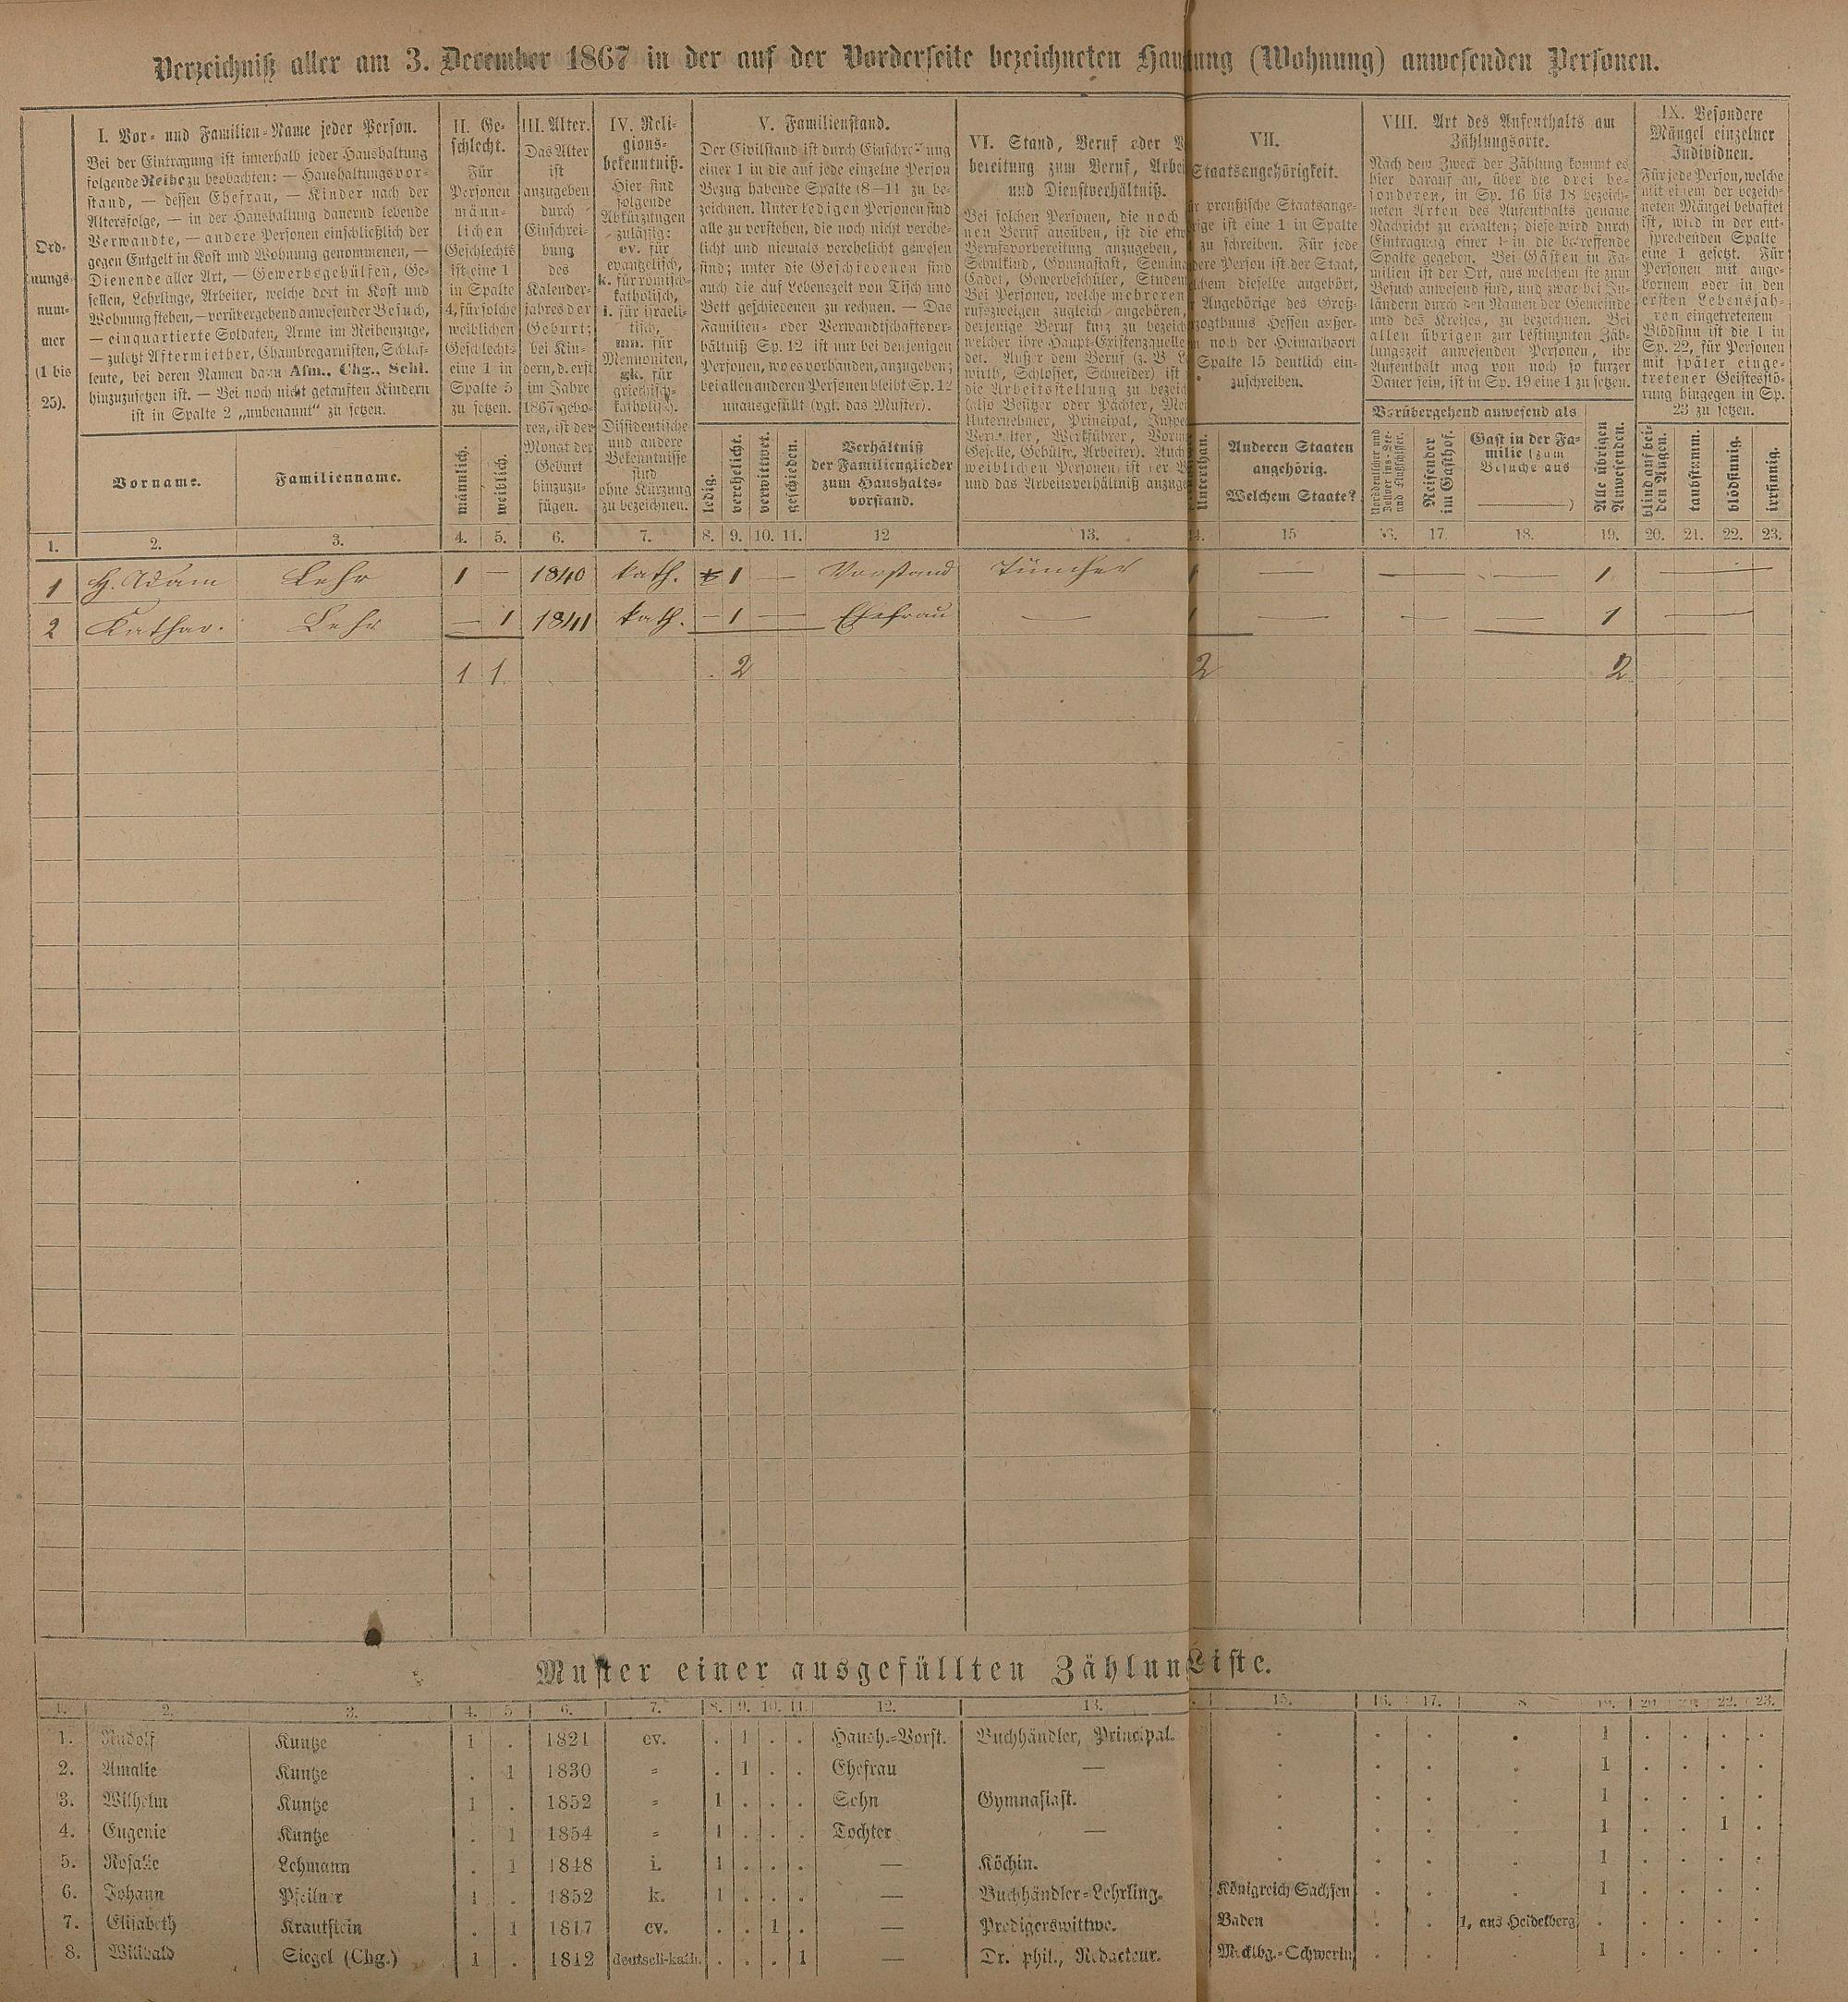 Verzeichniß aller am 3. December 1867 in der auf der Vorderseite bezeichneten Haushaltung (Wohnung) anwesenden Personen.
Ord-
nungs-
num-
mer
(1 bis
25).
I. Vor- und Familien-Name jeder Person.
Bei der Eintragung ist innerhalb jeder Haushaltung
folgende Reihe zu beobachten: — Haushaltungsvor-
stand, — dessen Ehefrau, — Kinder nach der
Altersfolge, — in der Haushaltung dauernd lebende
Verwandte, — andere Personen einschließlich der
gegen Entgelt in Kost und Wohnung genommenen, —
Dienende aller Art, — Gewerbsgehülfen, Ge-
sellen, Lehrlinge, Arbeiter, welche dort in Kost und
Wohnung stehen, — vorübergehend anwesender Besuch,
— einquartierte Soldaten, Arme im Reihenzuge,
— zuletzt Aftermiether, Chambregarnisten, Schlaf-
leute, bei deren Namen dazu Afm., Chg., Schl.
hinzuzusetzen ist. — Bei noch nicht getauften Kindern
ist in Spalte 2 „unbenannt“ zu setzen.
Vorname.
Familienname.
II. Ge-
schlecht.
Für
Personen
männ-
lichen
Geschlechts
ist eine 1
in Spalte
4, für solche
weiblichen
Geschlechts
eine 1 in
Spalte 5
zu setzen.
männlich.
weiblich.
III. Alter.
Das Alter
ist
anzugeben
durch
Einschrei-
bung
des
Kalender-
jahres der
Geburt;
bei Kin-
dern, d. erst
im Jahre
1867 gebo-
ren, ist der
Monat der
Geburt
hinzuzu-
fügen.
IV. Reli-
gions-
bekenntniß.
Hier sind
folgende
Abkürzungen
zulässig:
ev. für
evangelisch,
k. für römisch-
katholisch,
i. für israeli-
tisch,
mn. für
Mennoniten,
gk. für
griechisch-
katholisch.
Dissidentische
und andere
Bekenntnisse
sind
ohne Kürzung
zu bezeichnen.
V. Familienstand.
Der Civilstand ist durch Einschreibung
einer 1 in die auf jede einzelne Person
Bezug habende Spalte (8—11) zu be-
zeichnen. Unter ledigen Personen sind
alle zu verstehen, die noch nicht verehe-
licht und niemals verehelicht gewesen
sind; unter die Geschiedenen sind
auch die auf Lebenszeit von Tisch und
Bett geschiedenen zu rechnen. — Das
Familien- oder Verwandtschaftsver-
hältniß Sp. 12 ist nur bei denjenigen
Personen, wo es vorhanden, anzugeben;
bei allen anderen Personen bleibt Sp. 12
unausgefüllt (vgl. das Muster).
ledig.
verehelicht.
verwittwet.
geschieden.
Verhältniß
der Familienglieder
zum Haushalts-
vorstand.
VI. Stand, Beruf oder V
bereitung zum Beruf, Arbei
und Dienstverhältniß.
Bei solchen Personen, die noch
nen Beruf ausüben, ist die etw
Berufsvorbereitung anzugeben,
Schulkind, Gymnasiast, Semina
Cadet, Gewerbeschüler, Student
Bei Personen, welche mehreren
rufszweigen zugleich angehören,
derjenige Beruf kurz zu bezeich
welcher ihre Haupt-Existenzquelle
det. Außer dem Beruf (z. B. L
wirth, Schlosser, Schneider) ist
die Arbeitsstellung zu bezeich
(also Besitzer oder Pächter, Mei
Unternehmer, Principal, Inspe
Verwalter, Werkführer, Vorm
Geselle, Gehülfe, Arbeiter). Auch
weiblichen Personen ist der B
und das Arbeitsverhältniß anzuge
VII.
Staatsangehörigkeit.
r preußische Staatsange-
rige ist eine 1 in Spalte
zu schreiben. Für jede
dere Person ist der Staat,
lchem dieselbe angehört,
Angehörige des Groß-
zogthums Hessen außer-
n noch der Heimathsort
Spalte 15 deutlich ein-
zuschreiben.
Unterthan.
Anderen Staaten
angehörig.
Welchem Staate?
VIII. Art des Aufenthalts am
Zählungsorte.
Nach dem Zweck der Zählung kommt es
hier darauf an, über die drei be-
sonderen, in Sp. 16 bis 18 bezeich-
neten Arten des Aufenthalts genaue
Nachricht zu erhalten; diese wird durch
Eintragung einer 1 in die betreffende
Spalte gegeben. Bei Gästen in Fa-
milien ist der Ort, aus welchem sie zum
Besuch anwesend sind, und zwar bei In-
ländern durch den Namen der Gemeinde
und des Kreises, zu bezeichnen. Bei
allen übrigen zur bestimmten Zäh-
lungszeit anwesenden Personen, ihr
Aufenthalt mag von noch so kurzer
Dauer sein, ist in Sp. 19 eine 1 zu setzen.
Vorübergehend anwesend als
Norddeutscher und
Zollver ins-See-
und Flußschiffer.
Reisender
im Gasthof.
Gast in der Fa-
milie (zum
Besuche aus
——)
Alle übrigen
Anwesenden.
IX. Besondere
Mängel einzelner
Individuen.
Für jede Person, welche
mit einem der bezeich-
neten Mängel behaftet
ist, wird in der ent-
sprechenden Spalte
eine 1 gesetzt. Für
Personen mit ange-
bornem oder in den
ersten Lebensjah-
ren eingetretenem
Blödsinn ist die 1 in
Sp. 22, für Personen
mit später einge-
tretener Geistesstö-
rung hingegen in Sp.
23 zu setzen.
blind auf bei-
den Augen.
taubstumm.
blödsinnig.
irrsinnig.
1. 2. 3. 4. 5. 6. 7. 8. 9. 10. 11. 12 13. 14. 15 16. 17. 18. 19. 20. 21. 22. 23.
1 H. Adam Lehr 1 — 1840 kath. 1 — Vorstand Tüncher 1 — — — 1 —
2 Kathar. Lehr — 1 1841 kath. — 1 — Ehefrau — 1 — — — 1 —
1 1 2 2 2
Muster einer ausgefüllten Zählun Liste.
1. 2. 3. 4. 5 6. 7. 8. 9. 10. 11. 12. 13. 15. 16. 17. 8. 19. 20. 21. 22. 23.
1. Rudolf Kuntze 1 . 1821 ev. . 1 . . Haush.-Vorst. Buchhändler, Principal. . . . 1 . . . .
2. Amalie Kuntze . 1 1830 = . 1 . . Ehefrau — . . . 1 . . . .
3. Wilhelm Kuntze 1 . 1852 = 1 . . . Sohn Gymnasiast. . . . 1 . . . .
4. Eugenie Kuntze . 1 1854 = 1 . . . Tochter — . . . 1 . . 1 .
5. Rosalie Lehmann . 1 1848 i. 1 . . . — Köchin. . . . 1 . . . .
6. Johann Pfeilner 1 . 1852 k. 1 . . . — Buchhändler-Lehrling. Königreich Sachsen . . . 1 . . . .
7. Elisabeth Krautstein . 1 1817 ev. . . 1 . — Predigerswittwe. Baden . . 1, aus Heidelberg . . . . .
8. Willbald Siegel (Chg.) 1 . 1812 deutsch-kath. . . . 1 — Dr. phil., Redacteur. Mecklbg.-Schwerin . . . 1 . . . .